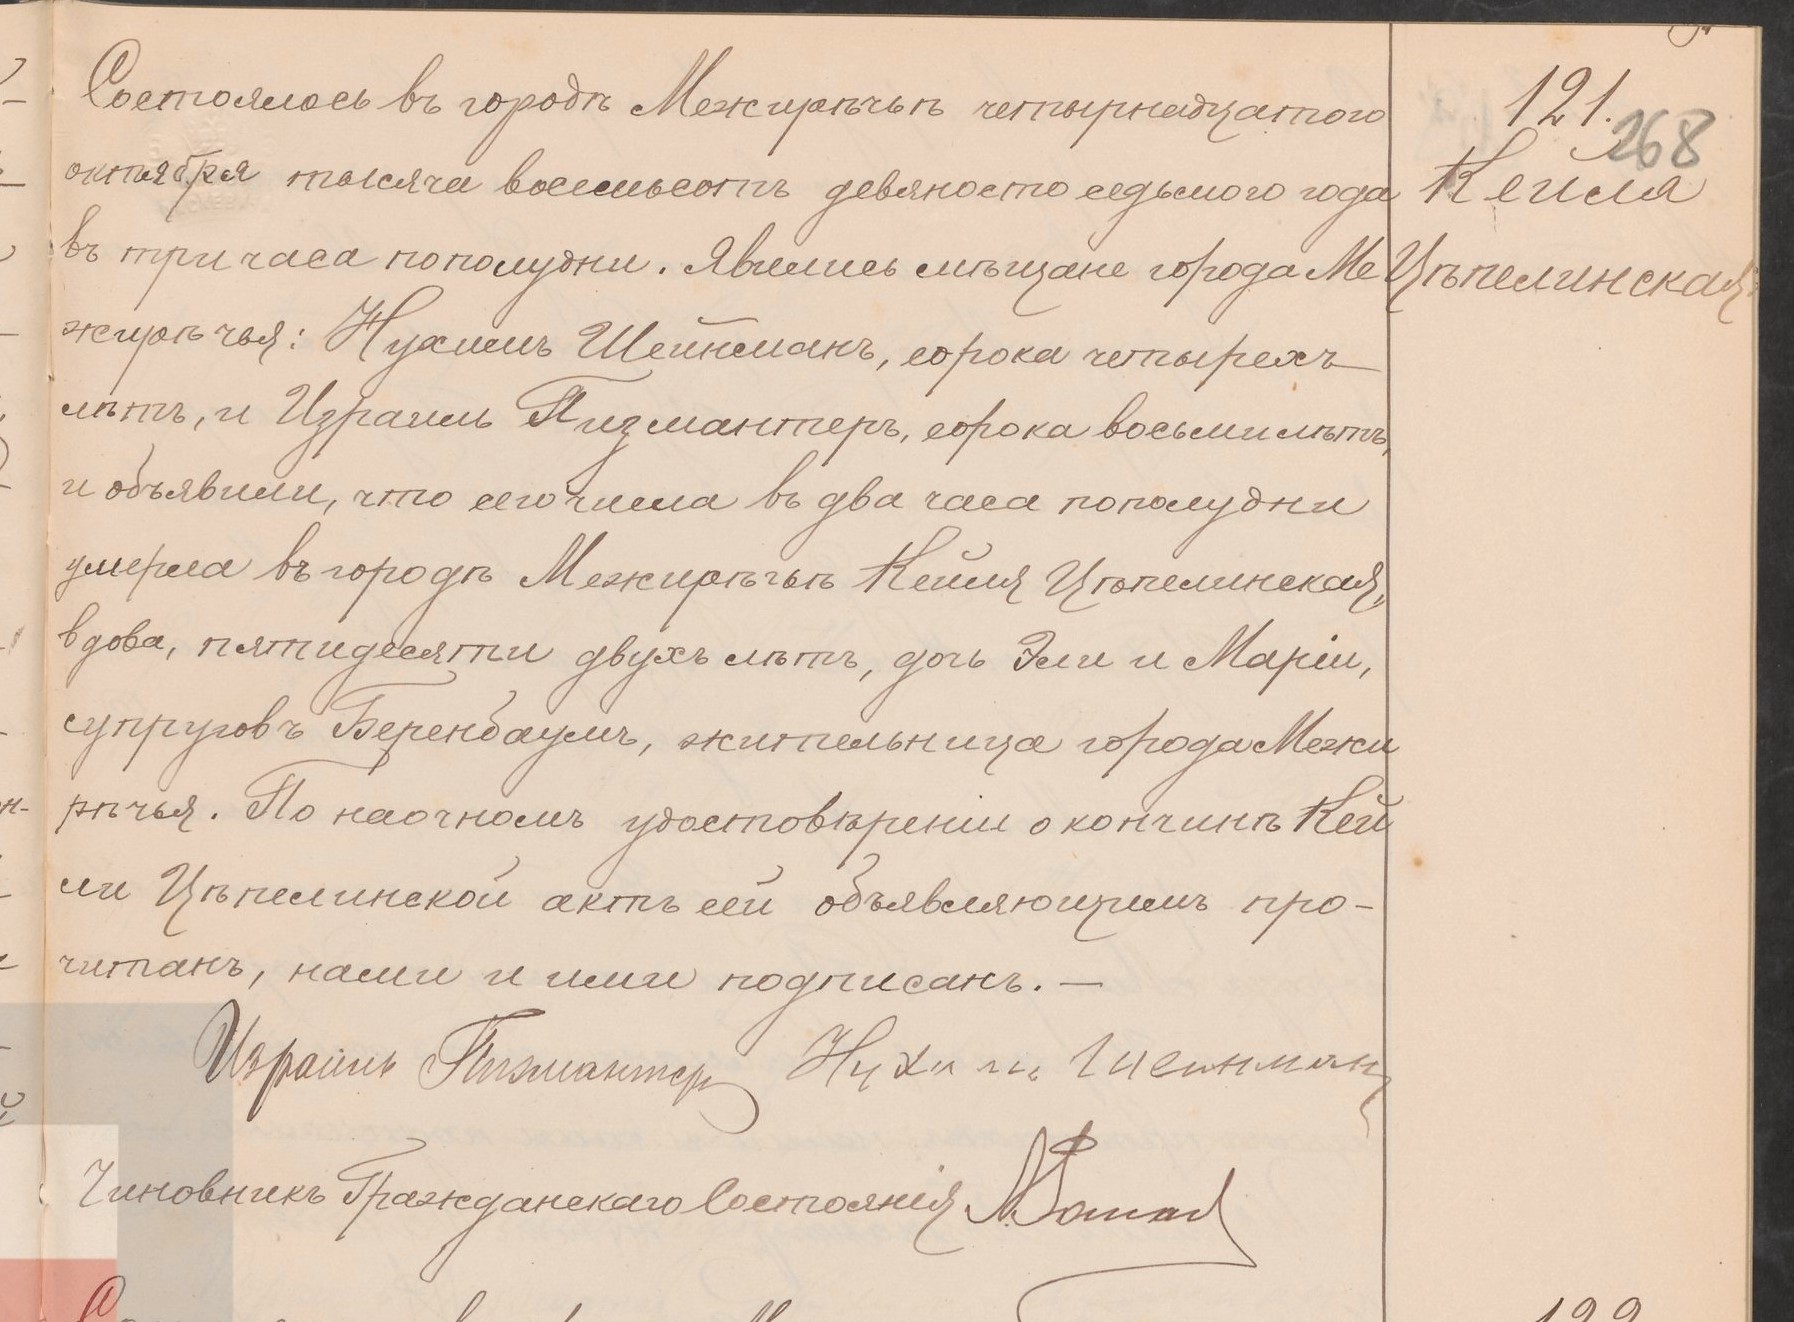 121.
268
Кейля
Цѣпелинская
Состоялось въ городѣ Межирѣчьѣ четырнадцатого
октября тысяча восемьсотъ девяносто седьмого года
въ три часа пополудни. Явились мѣщане города Ме
жирѣчья: Нухимъ Шейнманъ, сорока четырехъ
лѣтъ, и Израиль Пизмантеръ, сорока восьми лѣтъ,
и объявили, что сего числа въ два часа пополудни
умерла въ городѣ Межирѣчьѣ Кейля Цѣпелинская,
вдова, пятидесяти двухъ лѣтъ, дочь Эли и Маріи,
супруговъ Беренбаумъ, жительница города Межи
рѣчья. По наочномъ удостовѣреніи о кончинѣ Кей
ли Цѣпелинской актъ сей объявляющимъ про-
читанъ, нами и ими подписанъ. —
Израиль Пизмантер Нухимъ Шеинман
Чиновникъ Гражданскаго Состоянія
122